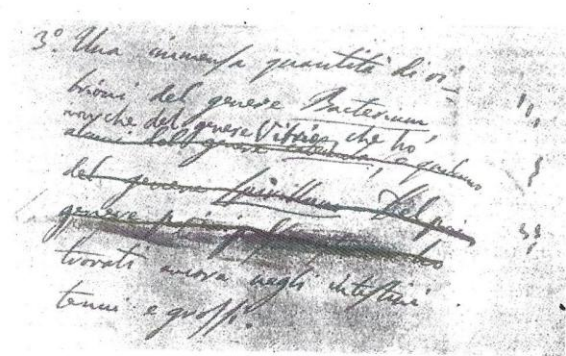 3.º Una immensa quantità di vi-
brioni del genere Bacterium
non che del genere Vibrio, che hò
alcuni del genere e qualcuno
del genere
genere
trovati ancora negli intestini
tenui e grossi.